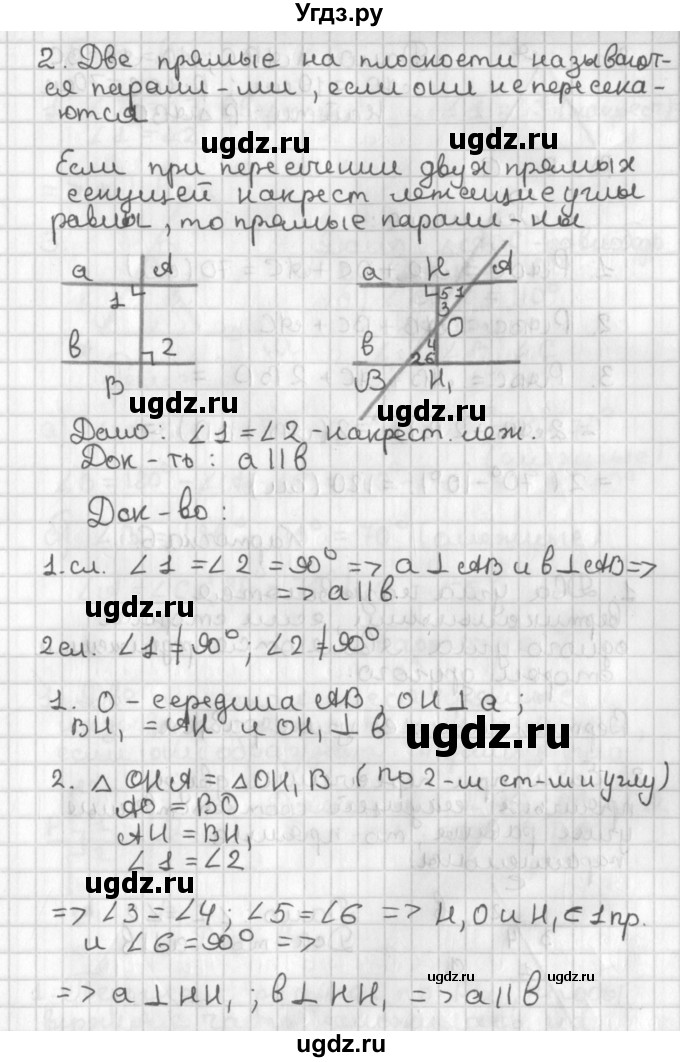 Угдз.ру
2. Две прямые на плоскости называют-
ся паралл-ми, если они не пересека-
ются
ugdz.ru
Если при пересечении двух прямых
секущей накрест лежащие углы
равны, то прямые паралл-ны
а А
1
в 2
В
а Н А
4 5 1
3
О
в 4
2 6
В Н₁
ugdz.ru ugdz.ru
Дано: ∠1 = ∠2 - накрест. леж.
Док-ть: а || в
Док-во:
1.сл. ∠1 = ∠2 = 90° => а ⊥ АВ и в ⊥ АВ =>
=> а || в.
ugdz.ru
2 сл. ∠1 ≠ 90°; ∠2 ≠ 90°
1. О - середина АВ, ОН ⊥ а;
ВН₁ = АН и ОН₁ ⊥ в
ugdz.ru
2. △ ОНА = △ ОН₁В (по 2-м ст-м и углу)
АО = ВО
АН = ВН₁
∠1 = ∠2
ugdz.ru
=> ∠3 = ∠4; ∠5 = ∠6 => Н, О и Н₁ ∈ 1 пр.
и ∠6 = 90° =>
ugdz.ru ugdz.ru
=> а ⊥ НН₁; в ⊥ НН₁ => а || в
ugdz.ru